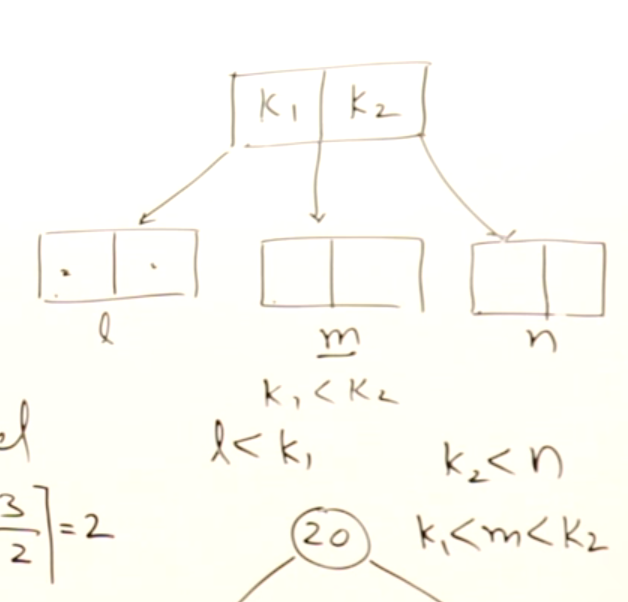 K₁ K₂
l m n
K₁ < K₂
l < K₁
K₂ < n
el
3/2⌉ = 2
20
K₁ < m < K₂